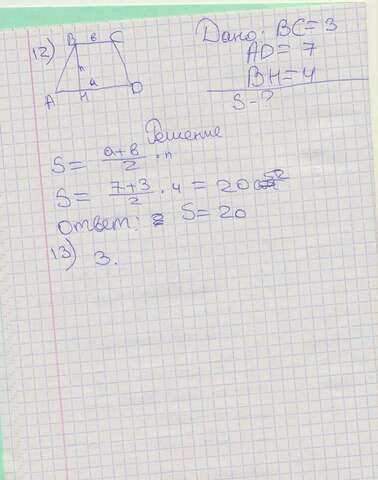 12) B в C
h
a
A H D
Дано: BC=3
AD=7
BH=4
S-?
Решение
S= a+в/2 · h
S= 7+3/2 · 4 = 20 см²
Ответ: S=20
13) 3.